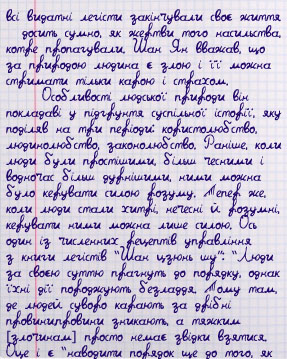 всі видатні легісти закінчували своє життя
досить сумно, як жертви того насильства,
котре пропагували. Шан Ян вважав, що
за природою людина є злою і її можна
стримати тільки карою і страхом.
Особливості людської природи він
покладаві у підґрунтя суспільної історії, яку
поділяв на три періоди: користолюбство,
людинолюбство, законолюбство. Раніше, коли
люди були простішими, більш чесними і
водночас більш дурнішими, ними можна
було керувати силою розуму. Тепер же,
коли люди стали хитрі, нечесні й розумні,
керувати ними можна лише силою. Ось
один із численних рецептів управління
з книги легістів "Шан цзюнь шу": "Люди
за своєю суттю прагнуть до порядку, однак
їхні дії породжують безладдя. Тому там,
де людей суворо карають за дрібні
провинипровини зникають, а тяжким
[злочинам] просто немає звідки взятися.
Оце і є "наводити порядок ще до того, як